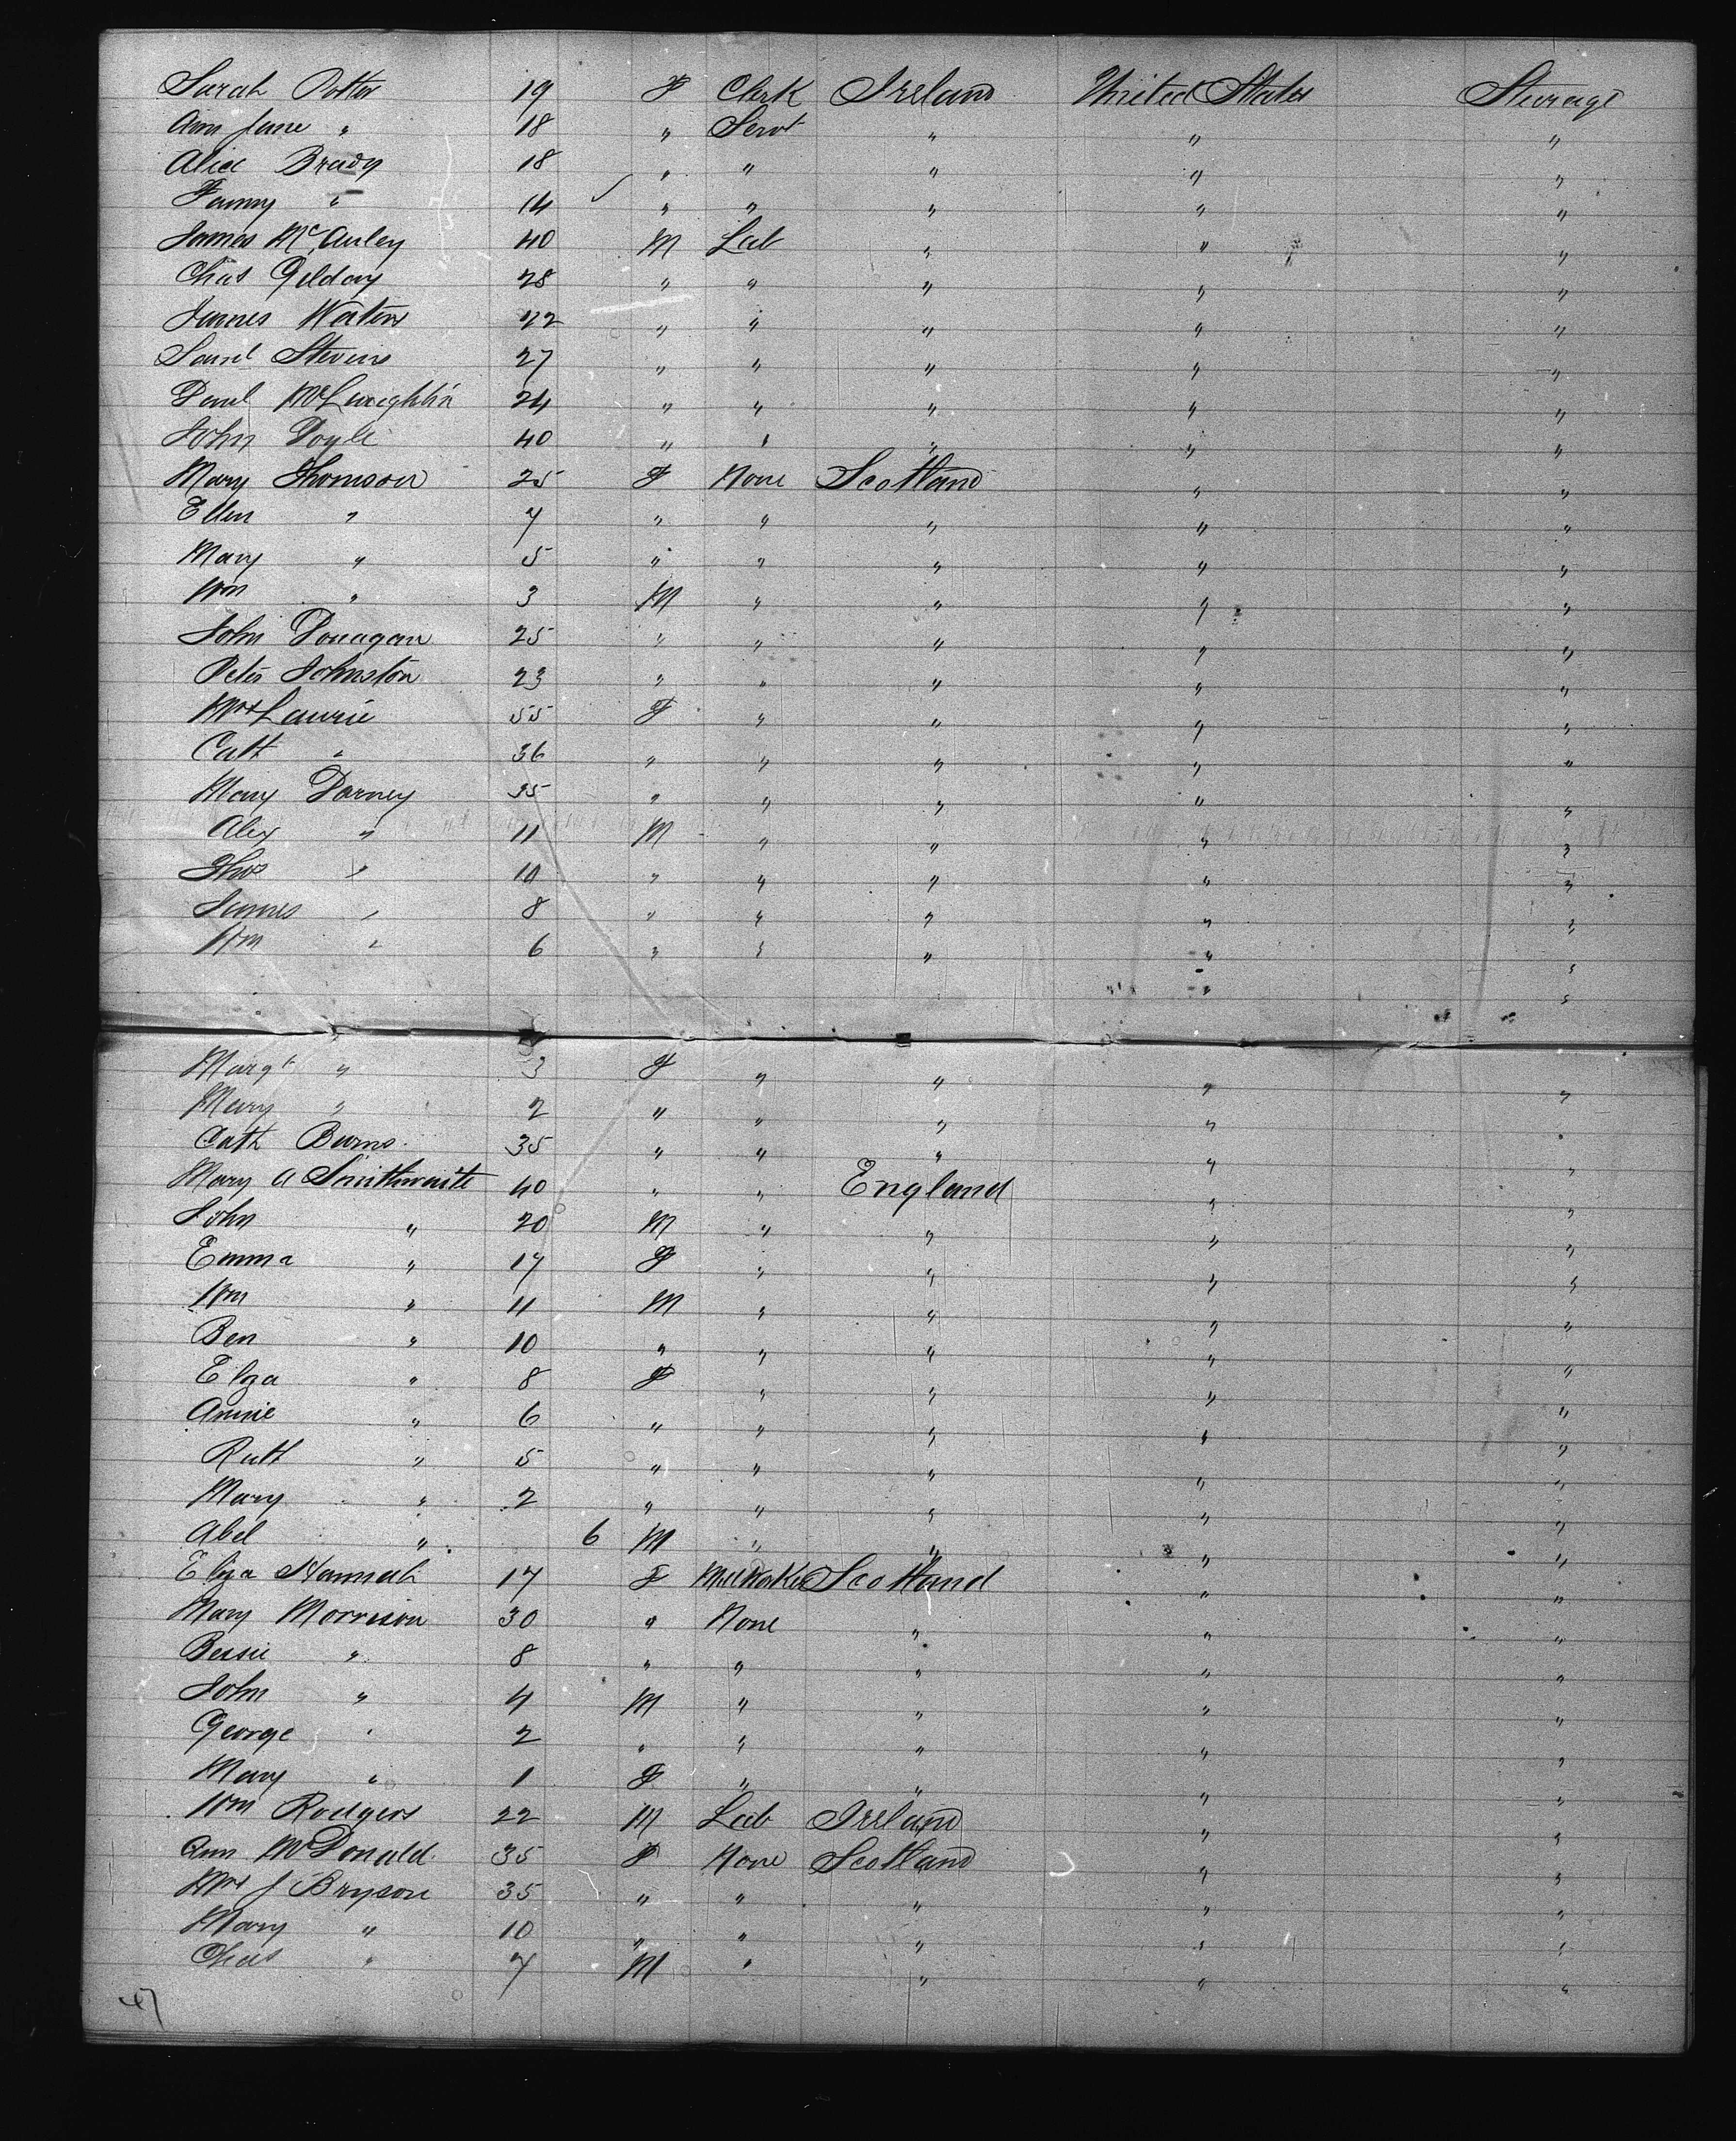 Sarah Potter 19 F Clerk Ireland United States Steerage
Ann Jane " 18 " Servt " " "
Alice Brady 18 " " " " "
Fanny " 14 " " " " "
James McAuley 40 M Lab " " "
Chas Gilday 28 " " " " "
James Waters 22 " " " " "
Saml Stevens 27 " " " " "
Danl McLaughlin 24 " " " " "
John Doyle 40 " " " " "
Mary Thomson 25 F None Scotland " "
Ellen " 7 " " " " "
Mary " 5 " " " " "
Wm " 3 M " " " "
John Donagan 25 " " " " "
Peter Johnston 23 " " " " "
Mrs Laurie 55 F " " " "
Cath " 36 " " " " "
Mary Darney 35 " " " " "
Alex " 11 M " " " "
Thos " 10 " " " " "
James " 8 " " " " "
Wm " 6 " " " " "
" "
Margt " 3 F " " " "
Mary " 2 " " " " "
Cath Burns 35 " " " " "
Mary A Smithwaite 40 " " England " "
John " 20 M " " " "
Emma " 17 F " " " "
Wm " 11 M " " " "
Ben " 10 " " " " "
Elza " 8 F " " " "
Annie " 6 " " " " "
Ruth " 5 " " " " "
Mary " 2 " " " " "
Abel " 6 M " " " "
Eliza Hannah 17 F Mill Worker Scotland " "
Mary Morrison 30 " None " " "
Bessie " 8 " " " " "
John " 4 M " " " "
George " 2 " " " " "
Mary " 1 F " " " "
Wm Rodgers 22 M Lab Ireland " "
Ann McDonald 35 F None Scotland " "
Mrs J Bryson 35 " " " " "
Mary " 10 " " " " "
Chas " 7 M " " " "
47